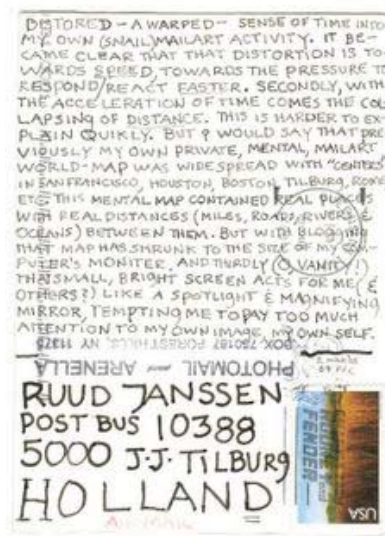 DISTORED - A WARPED - SENSE OF TIME INTO
MY OWN (SNAIL) MAILART ACTIVITY. IT BE-
CAME CLEAR THAT THAT DISTORTION IS TO
WARDS SPEED, TOWARDS THE PRESSURE TO
RESPOND/REACT FASTER. SECONDLY, WITH
THE ACCELERATION OF TIME COMES THE COL
LAPSING OF DISTANCE. THIS IS HARDER TO EX
PLAIN QUIKLY. BUT I WOULD SAY THAT PRE
VIOUSLY MY OWN PRIVATE, MENTAL, MAILART
WORLD-MAP WAS WIDESPREAD WITH "CENTERS"
IN SAN FRANCISCO, HOUSTON, BOSTON, TILBURG, ROME
ETC. THIS MENTAL MAP CONTAINED REAL PLACES
WITH REAL DISTANCES (MILES, ROADS, RIVERS &
OCEANS) BETWEEN THEM. BUT WITH BLOGGING
THAT MAP HAS SHRUNK TO THE SIZE OF MY COM-
PUTER'S MONITER. AND THIRDLY (O VANITY!)
THAT SMALL, BRIGHT SCREEN ACTS FOR ME (&
OTHERS?) LIKE A SPOTLIGHT & MAGNIFYING
MIRROR, TEMPTING ME TO PAY TOO MUCH
ATTENTION TO MY OWN IMAGE, MY OWN SELF.
BOX 750187 FOREST HILLS, NY 11375
PHOTOMAIL ARENELLA
RUUD JANSSEN
POST BUS 10388
5000 J.J. TILBURG
HOLLAND
AIRMAIL
FENDER
USA